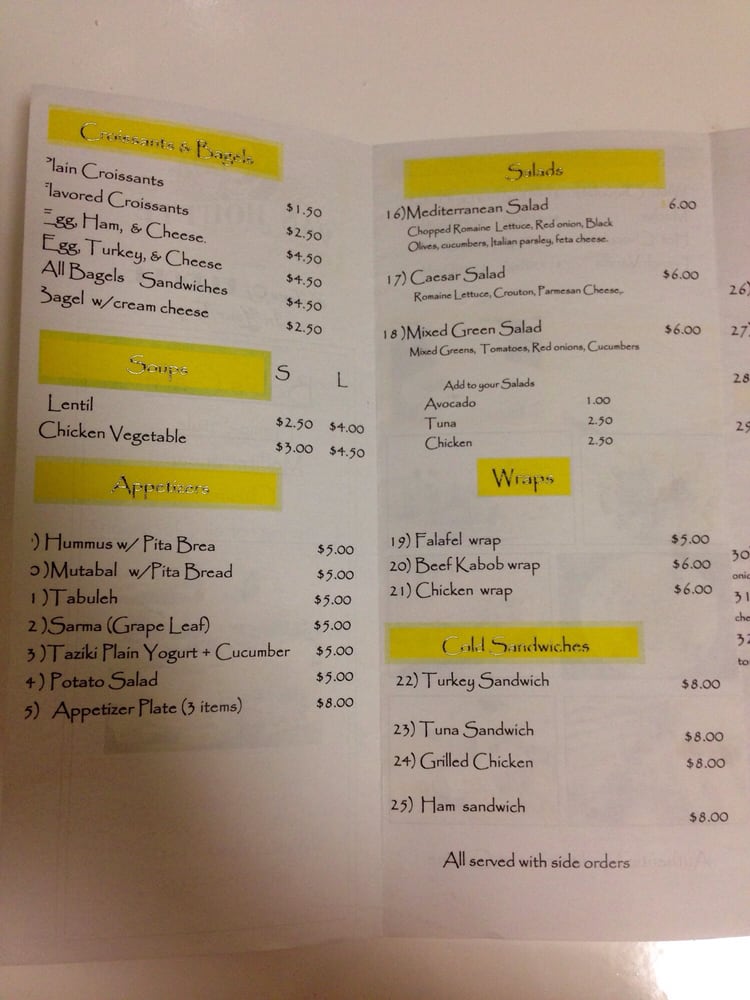 Croissants & Bagels
lain Croissants $1.50
lavored Croissants $2.50
Egg, Ham, & Cheese. $4.50
Egg, Turkey, & Cheese $4.50
All Bagels Sandwiches $4.50
Bagel w/cream cheese $2.50
Soups S L
Lentil $2.50 $4.00
Chicken Vegetable $3.00 $4.50
Appetizers
) Hummus w/ Pita Brea $5.00
0)Mutabal w/Pita Bread $5.00
1)Tabuleh $5.00
2)Sarma (Grape Leaf) $5.00
3)Taziki Plain Yogurt + Cucumber $5.00
4) Potato Salad $5.00
5) Appetizer Plate (3 items) $8.00
Salads
16)Mediterranean Salad 6.00
Chopped Romaine Lettuce, Red onion, Black
Olives, cucumbers, Italian parsley, feta cheese.
17) Caesar Salad $6.00
Romaine Lettuce, Crouton, Parmesan Cheese,.
18)Mixed Green Salad $6.00
Mixed Greens, Tomatoes, Red onions, Cucumbers
Add to your Salads
Avocado 1.00
Tuna 2.50
Chicken 2.50
Wraps
19) Falafel wrap $5.00
20) Beef Kabob wrap $6.00
21) Chicken wrap $6.00
Cold Sandwiches
22) Turkey Sandwich $8.00
23) Tuna Sandwich $8.00
24) Grilled Chicken $8.00
25) Ham sandwich $8.00
All served with side orders
26)
27)
28
29
30
onic
31
che
32
to